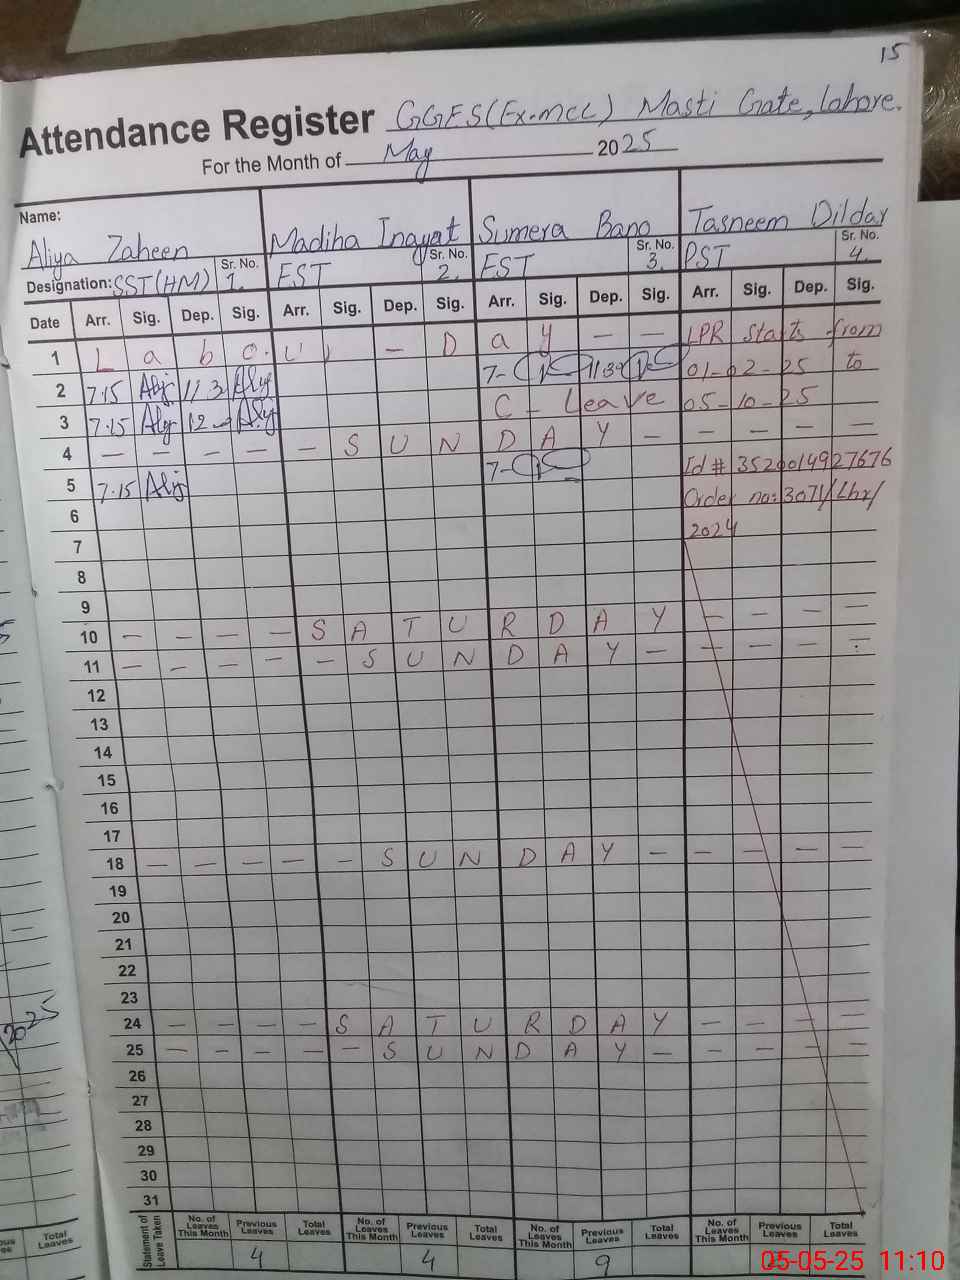 15
Attendance Register GGES(Ex.mcc) Masti Gate, Lahore.
For the Month of May 2025
Name:
Aliya Zaheen Madiha Inayat Sumera Bano Tasneem Dildar
Designation: SST(HM) Sr. No. 1. EST Sr. No. 2. EST Sr. No. 3. PST Sr. No. 4.
Date Arr. Sig. Dep. Sig. Arr. Sig. Dep. Sig. Arr. Sig. Dep. Sig. Arr. Sig. Dep. Sig.
1 L a b o u r - D a y - - LPR starts from
2 7.15 11.3 7- 1130 01-02-25 to
3 7.15 12 C - Leave 05-10-25
4 - - - - - S U N D A Y - - - - -
5 7.15 7- Id # 3520014927676
6 Order no: 3071/Lhr/
7 2024
8
9
10 - - - - S A T U R D A Y - - - -
11 - - - - - S U N D A Y - - - - -
12
13
14
15
16
17
18 - - - - - S U N D A Y - - - - -
19
20
21
22
23
24 - - - - S A T U R D A Y - - - -
25 - - - - - S U N D A Y - - - - -
26
27
28
29
30
31
Statement of Leave Taken No. of Leaves This Month Previous Leaves Total Leaves No. of Leaves This Month Previous Leaves Total Leaves No. of Leaves This Month Previous Leaves Total Leaves No. of Leaves This Month Previous Leaves Total Leaves
4 4 9
2025
Total Leaves
05-05-25 11:10